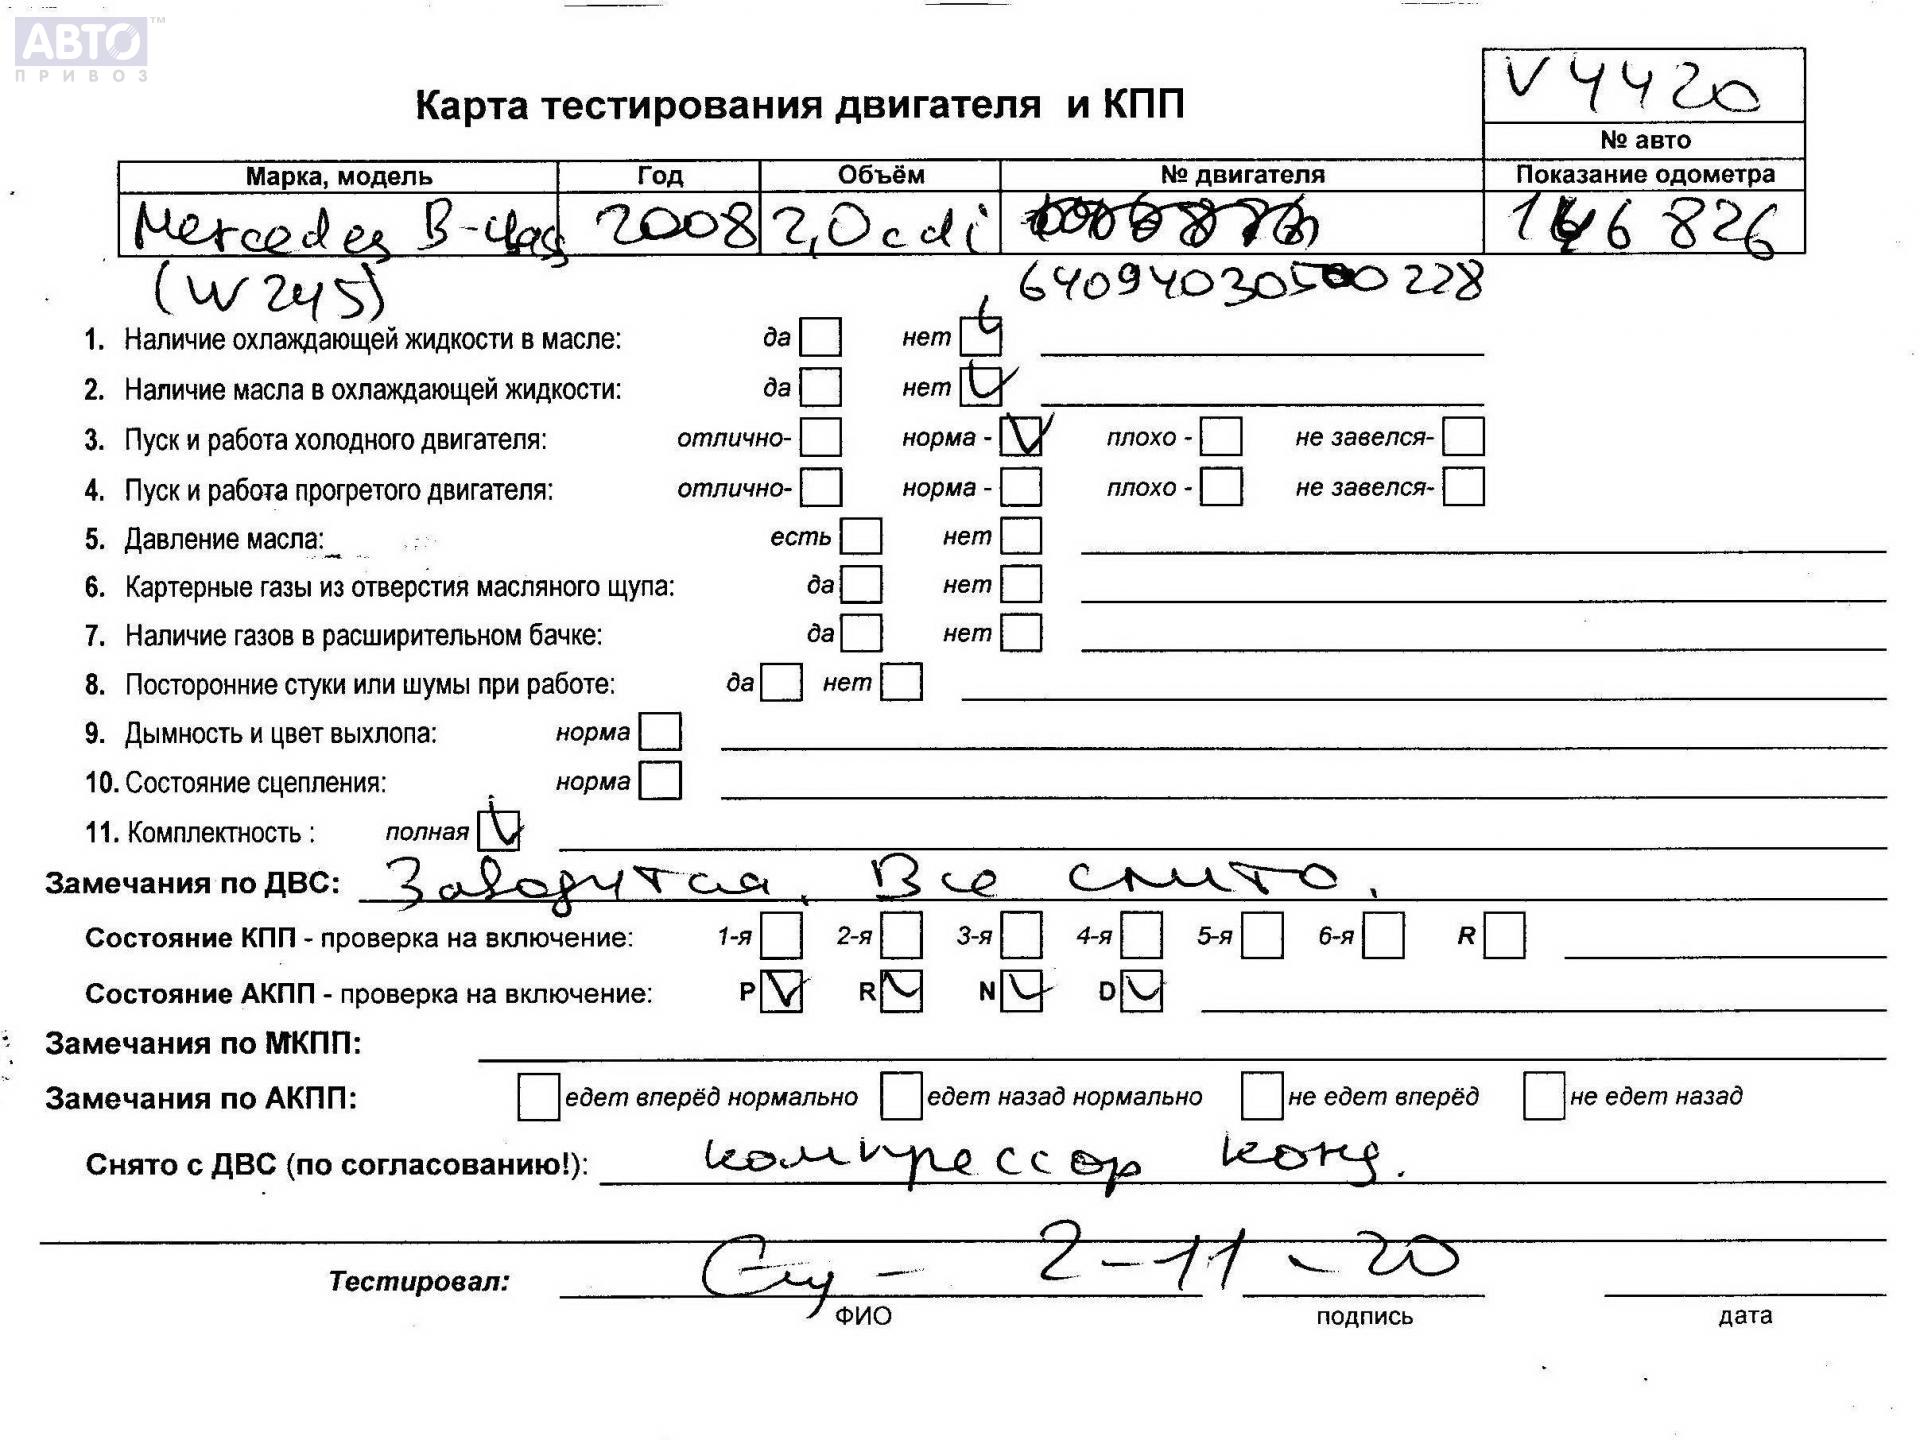 АВТО™
ПРИВОЗ
V4420
Карта тестирования двигателя и КПП
№ авто
Марка, модель Год Объём № двигателя Показание одометра
Mercedes B-клас 2008 2,0 cdi 826
(W245) 64094030500228
1. Наличие охлаждающей жидкости в масле: да нет
2. Наличие масла в охлаждающей жидкости: да нет
3. Пуск и работа холодного двигателя: отлично- норма - плохо - не завелся-
4. Пуск и работа прогретого двигателя: отлично- норма - плохо - не завелся-
5. Давление масла: есть нет
6. Картерные газы из отверстия масляного щупа: да нет
7. Наличие газов в расширительном бачке: да нет
8. Посторонние стуки или шумы при работе: да нет
9. Дымность и цвет выхлопа: норма
10. Состояние сцепления: норма
11. Комплектность : полная
Замечания по ДВС: Заводится. Все слито.
Состояние КПП - проверка на включение: 1-я 2-я 3-я 4-я 5-я 6-я R
Состояние АКПП - проверка на включение: P R N D
Замечания по МКПП:
Замечания по АКПП: едет вперёд нормально едет назад нормально не едет вперёд не едет назад
Снято с ДВС (по согласованию!): компрессор конд.
Тестировал: 2-11-20
ФИО подпись дата